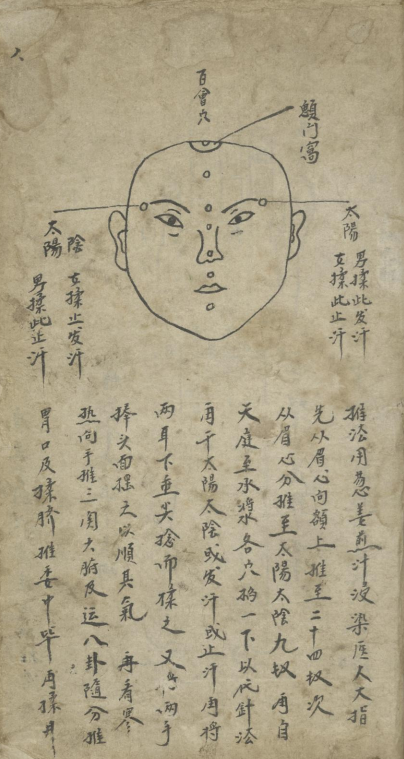 百會穴
顖门窩
太陽
男揉此发汗
女揉此止汗
陰
太陽
女揉止发汗
男揉此止汗
推法用葱姜煎汁浸染医人大指
先从眉心向額上推至二十四数次
从眉心分推至太陽太陰九数再自
天庭至承漿各穴掐一下以代針法
再于太陽太陰或发汗或止汗再将
两耳下垂尖捻而揉之又将两手
捧头面摇之以順其氣再看寒
热向手推三関六腑及运八卦隨分推
胃口及揉臍推委中毕再揉井